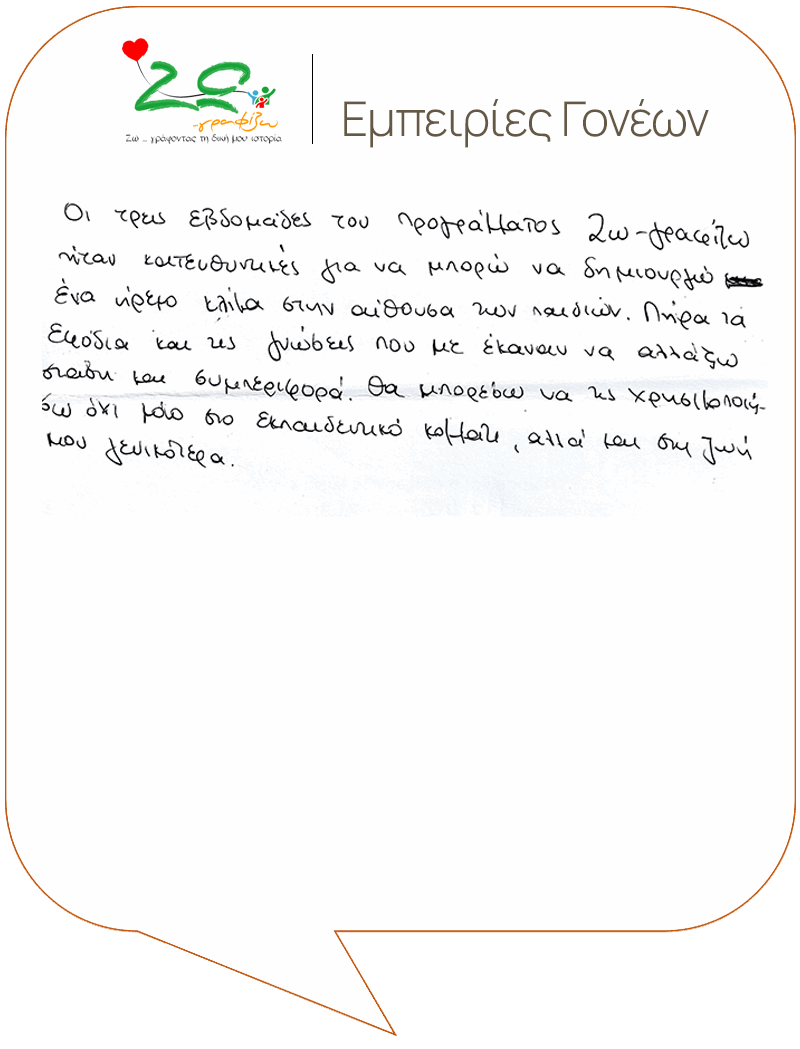 Ζω
-γραφίζω
Ζω ... γράφοντας τη δική μου ιστορία
Εμπειρίες Γονέων
Οι τρεις εβδομάδες του προγράμματος Ζω-γραφίζω
ήταν κατευθυντικές για να μπορώ να δημιουργώ
ένα ήρεμο κλίμα στην αίθουσα των παιδιών. Πήρα τα
εφόδια και τις γνώσεις που με έκαναν να αλλάξω
στάση και συμπεριφορά. Θα μπορέσω να τις χρησιμοποιή-
σω όχι μόνο στο εκπαιδευτικό κομμάτι, αλλά και στη ζωή
μου γενικότερα.